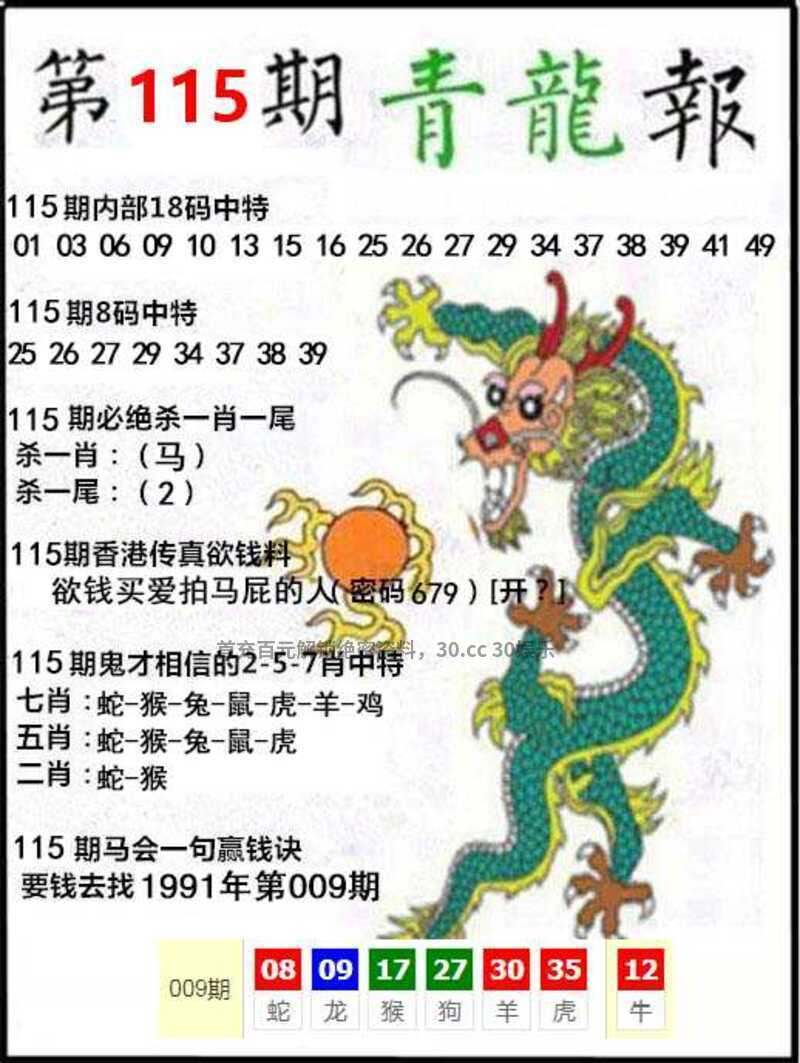 第115期青龍報
115期内部18码中特
01 03 06 09 10 13 15 16 25 26 27 29 34 37 38 39 41 49
115期8码中特
25 26 27 29 34 37 38 39
115期必绝杀一肖一尾
杀一肖：（马）
杀一尾：（2）
115期香港传真欲钱料
欲钱买爱拍马屁的人(密码679)[开？]
首充百元解锁绝密资料，30.cc 30娱乐
115期鬼才相信的2-5-7肖中特
七肖：蛇-猴-兔-鼠-虎-羊-鸡
五肖：蛇-猴-兔-鼠-虎
二肖：蛇-猴
115期马会一句赢钱诀
要钱去找1991年第009期
009期 08 09 17 27 30 35 12
蛇 龙 猴 狗 羊 虎 牛